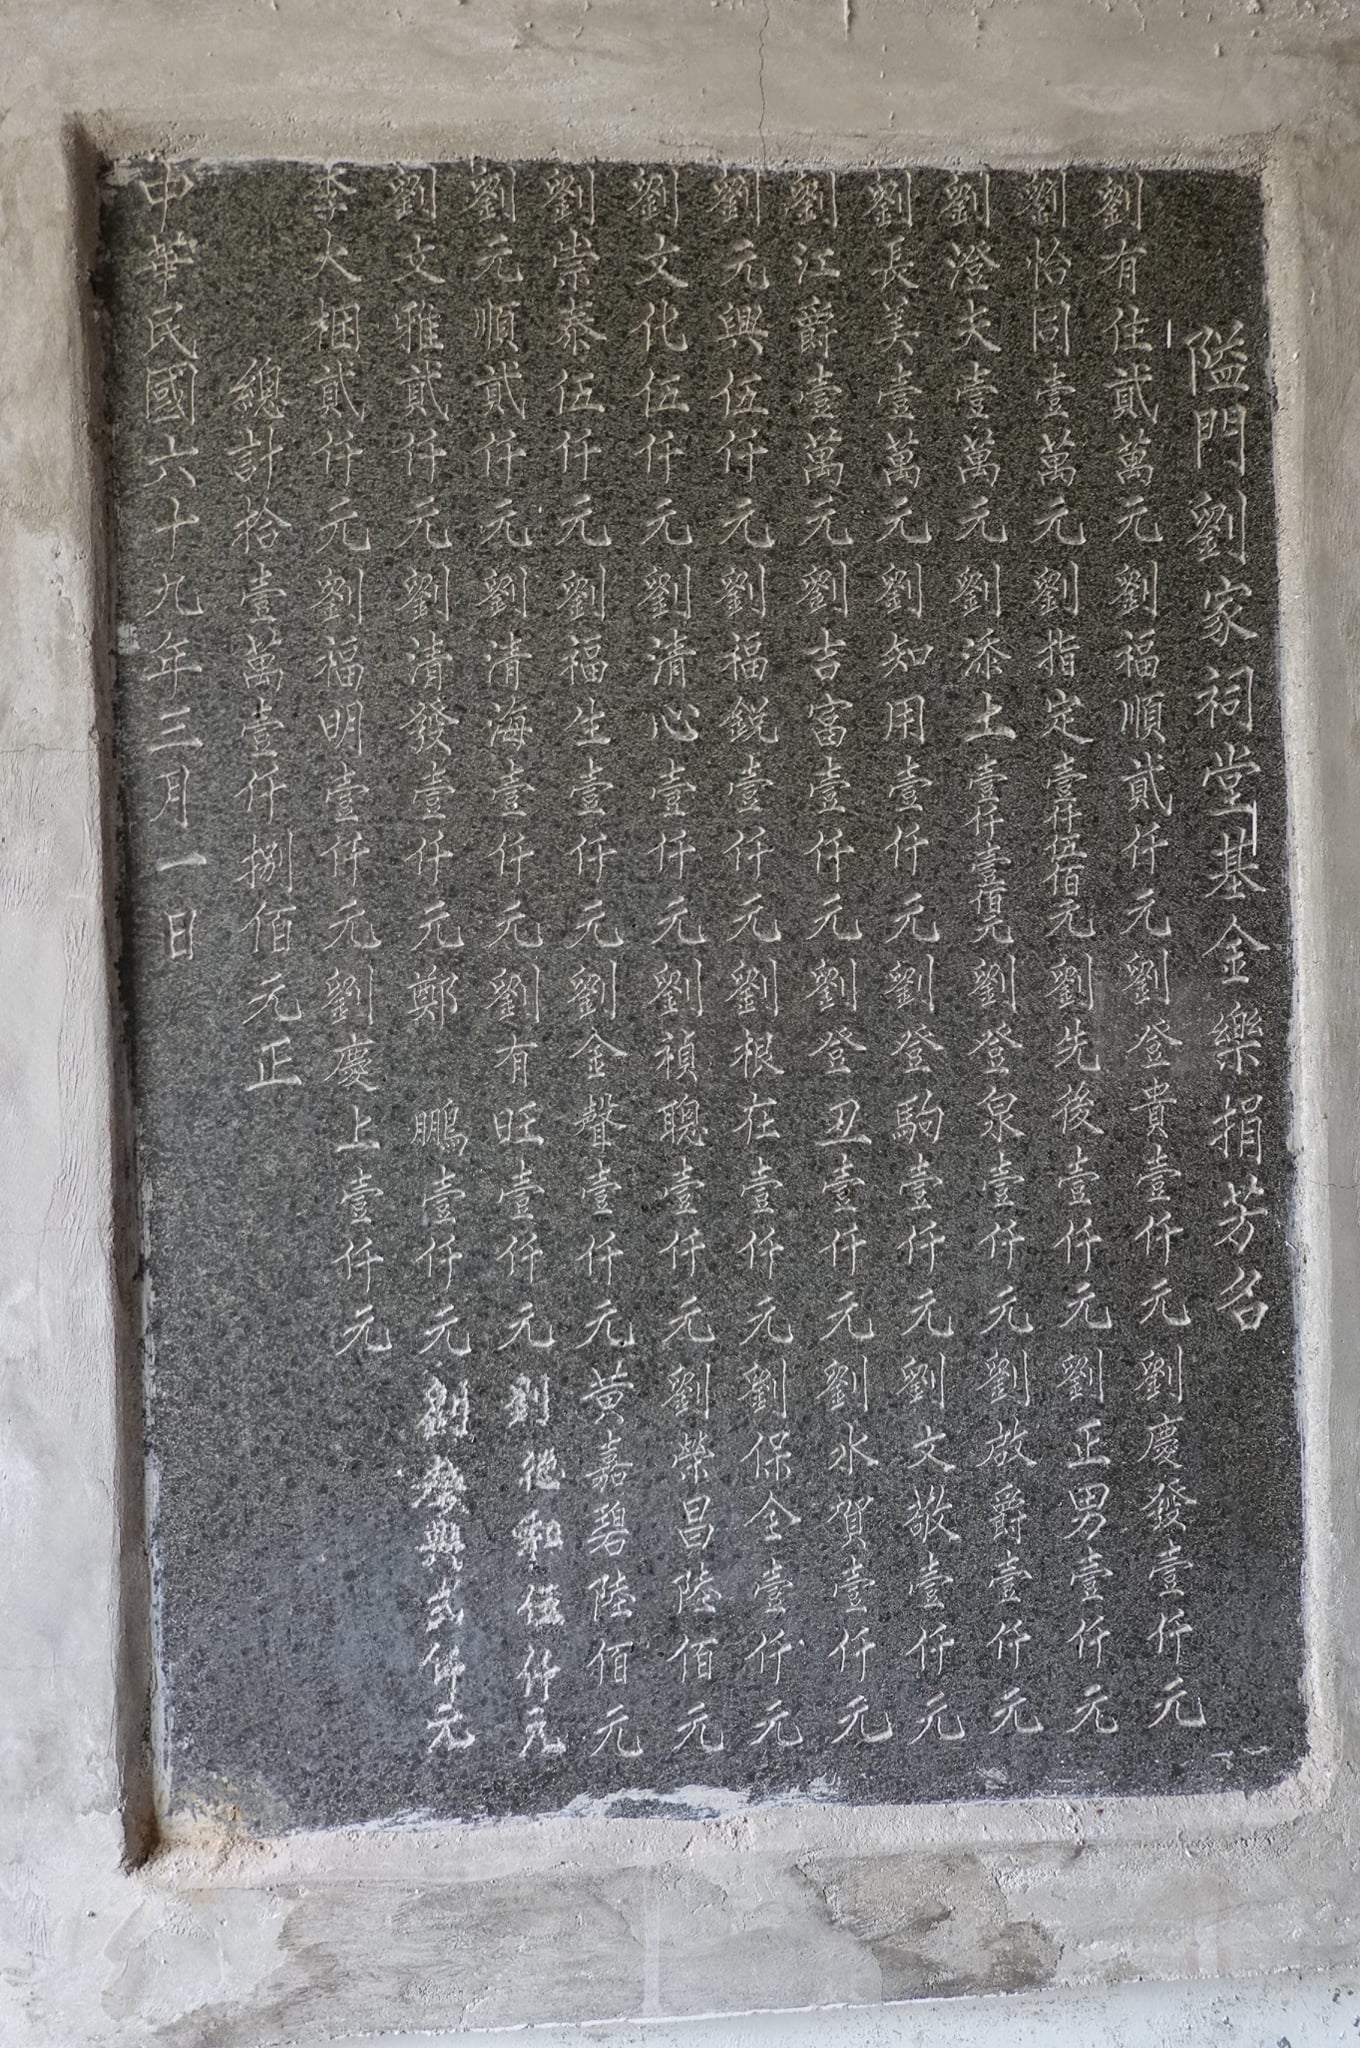 隘門劉家祠堂基金樂捐芳名
劉有住貳萬元劉福順貳仟元劉登貴壹仟元劉慶發壹仟元
劉怡同壹萬元劉指定壹仟伍佰元劉先後壹仟元劉正男壹仟元
劉澄夫壹萬元劉添土壹仟壹佰元劉登泉壹仟元劉啟爵壹仟元
劉長美壹萬元劉知用壹仟元劉登駒壹仟元劉文敬壹仟元
劉江爵壹萬元劉吉富壹仟元劉登丑壹仟元劉水賀壹仟元
劉元興伍仟元劉福銳壹仟元劉根在壹仟元劉保全壹仟元
劉文化伍仟元劉清心壹仟元劉禎聰壹仟元劉榮昌陸佰元
劉崇泰伍仟元劉福生壹仟元劉金聲壹仟元黃嘉碧陸佰元
劉元順貳仟元劉清海壹仟元劉有旺壹仟元劉德和伍仟元
劉文雅貳仟元劉清發壹仟元鄭鵬壹仟元劉興式仟元
李大梱貳仟元劉福明壹仟元劉慶上壹仟元
總計拾壹萬壹仟捌佰元正
中華民國六十九年三月一日